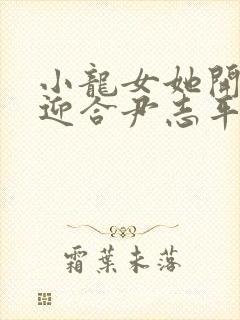 小龍女她開
迎合尹志平
霜葉未落